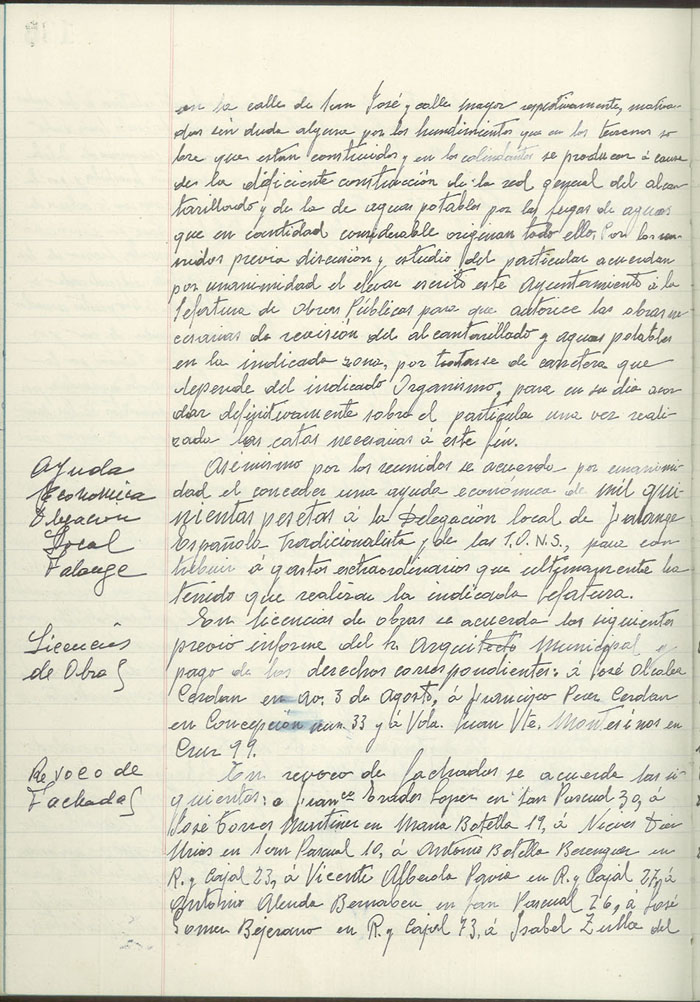 en la calle de San José y calle mayor respectivamente, motiva-
das sin duda alguna por los hundimientos que en los terrenos so
bre que estan construidos y en los colindantes se producen á causa
de la deficiente construcción de la red general del alcan
tarillado y de la de aguas potables por las fugas de aguas
que en cantidad considerable originan todo ello. Por los reu-
nidos previa discusión y estudio del particular acuerdan
por unanimidad el elevar escrito este Ayuntamiento á la
Jefatura de Obras Públicas para que autorice las obras ne
cesarias de revisión del alcantarillado y aguas potables
en la indicada zona, por tratarse de carretera que
depende del indicado Organismo, para en su dia acor
dar definitivamente sobre el particular una vez reali-
zada las catas necesarias á este fin.
Ayuda
Economica
Delegación
Local
Falange
Asimismo por los reunidos se acuerda por unanimi-
dad el conceder una ayuda económica de mil qui-
nientas pesetas á la Delegación local de Falange
Española Tradicionalista y de las J.O.N.S., para con
tribuir á gastos extraordinarios que ultimamente ha
tenido que realizar la indicada Jefatura.
Licencias
de Obras
En licencias de obras se acuerda las siguientes
previo informe del Sr. Arquitecto Municipal y
pago de los derechos correspondientes: á José Alcaraz
Cerdan en av. 3 de Agosto, á Francisco Perez Cerdan
en Concepción num. 33 y á Vda. Juan Vte. Montesinos en
Cruz 99.
Revoco de
Fachadas
En revoco de fachadas se acuerda las si
guientes: a Franco López en San Pascual 30, á
José Torres Martinez en Maria Botella 19, á Nieves
en San Pascual 10, á Antonio Botella Berenguer en
R. y Cajal 23, á Vicente Alberola en R. y Cajal 27, á
Antonio Alenda Bernabeu en San Pascual 26, á José
Gomez Bejerano en R. y Cajal 73, á Isabel Zulla del